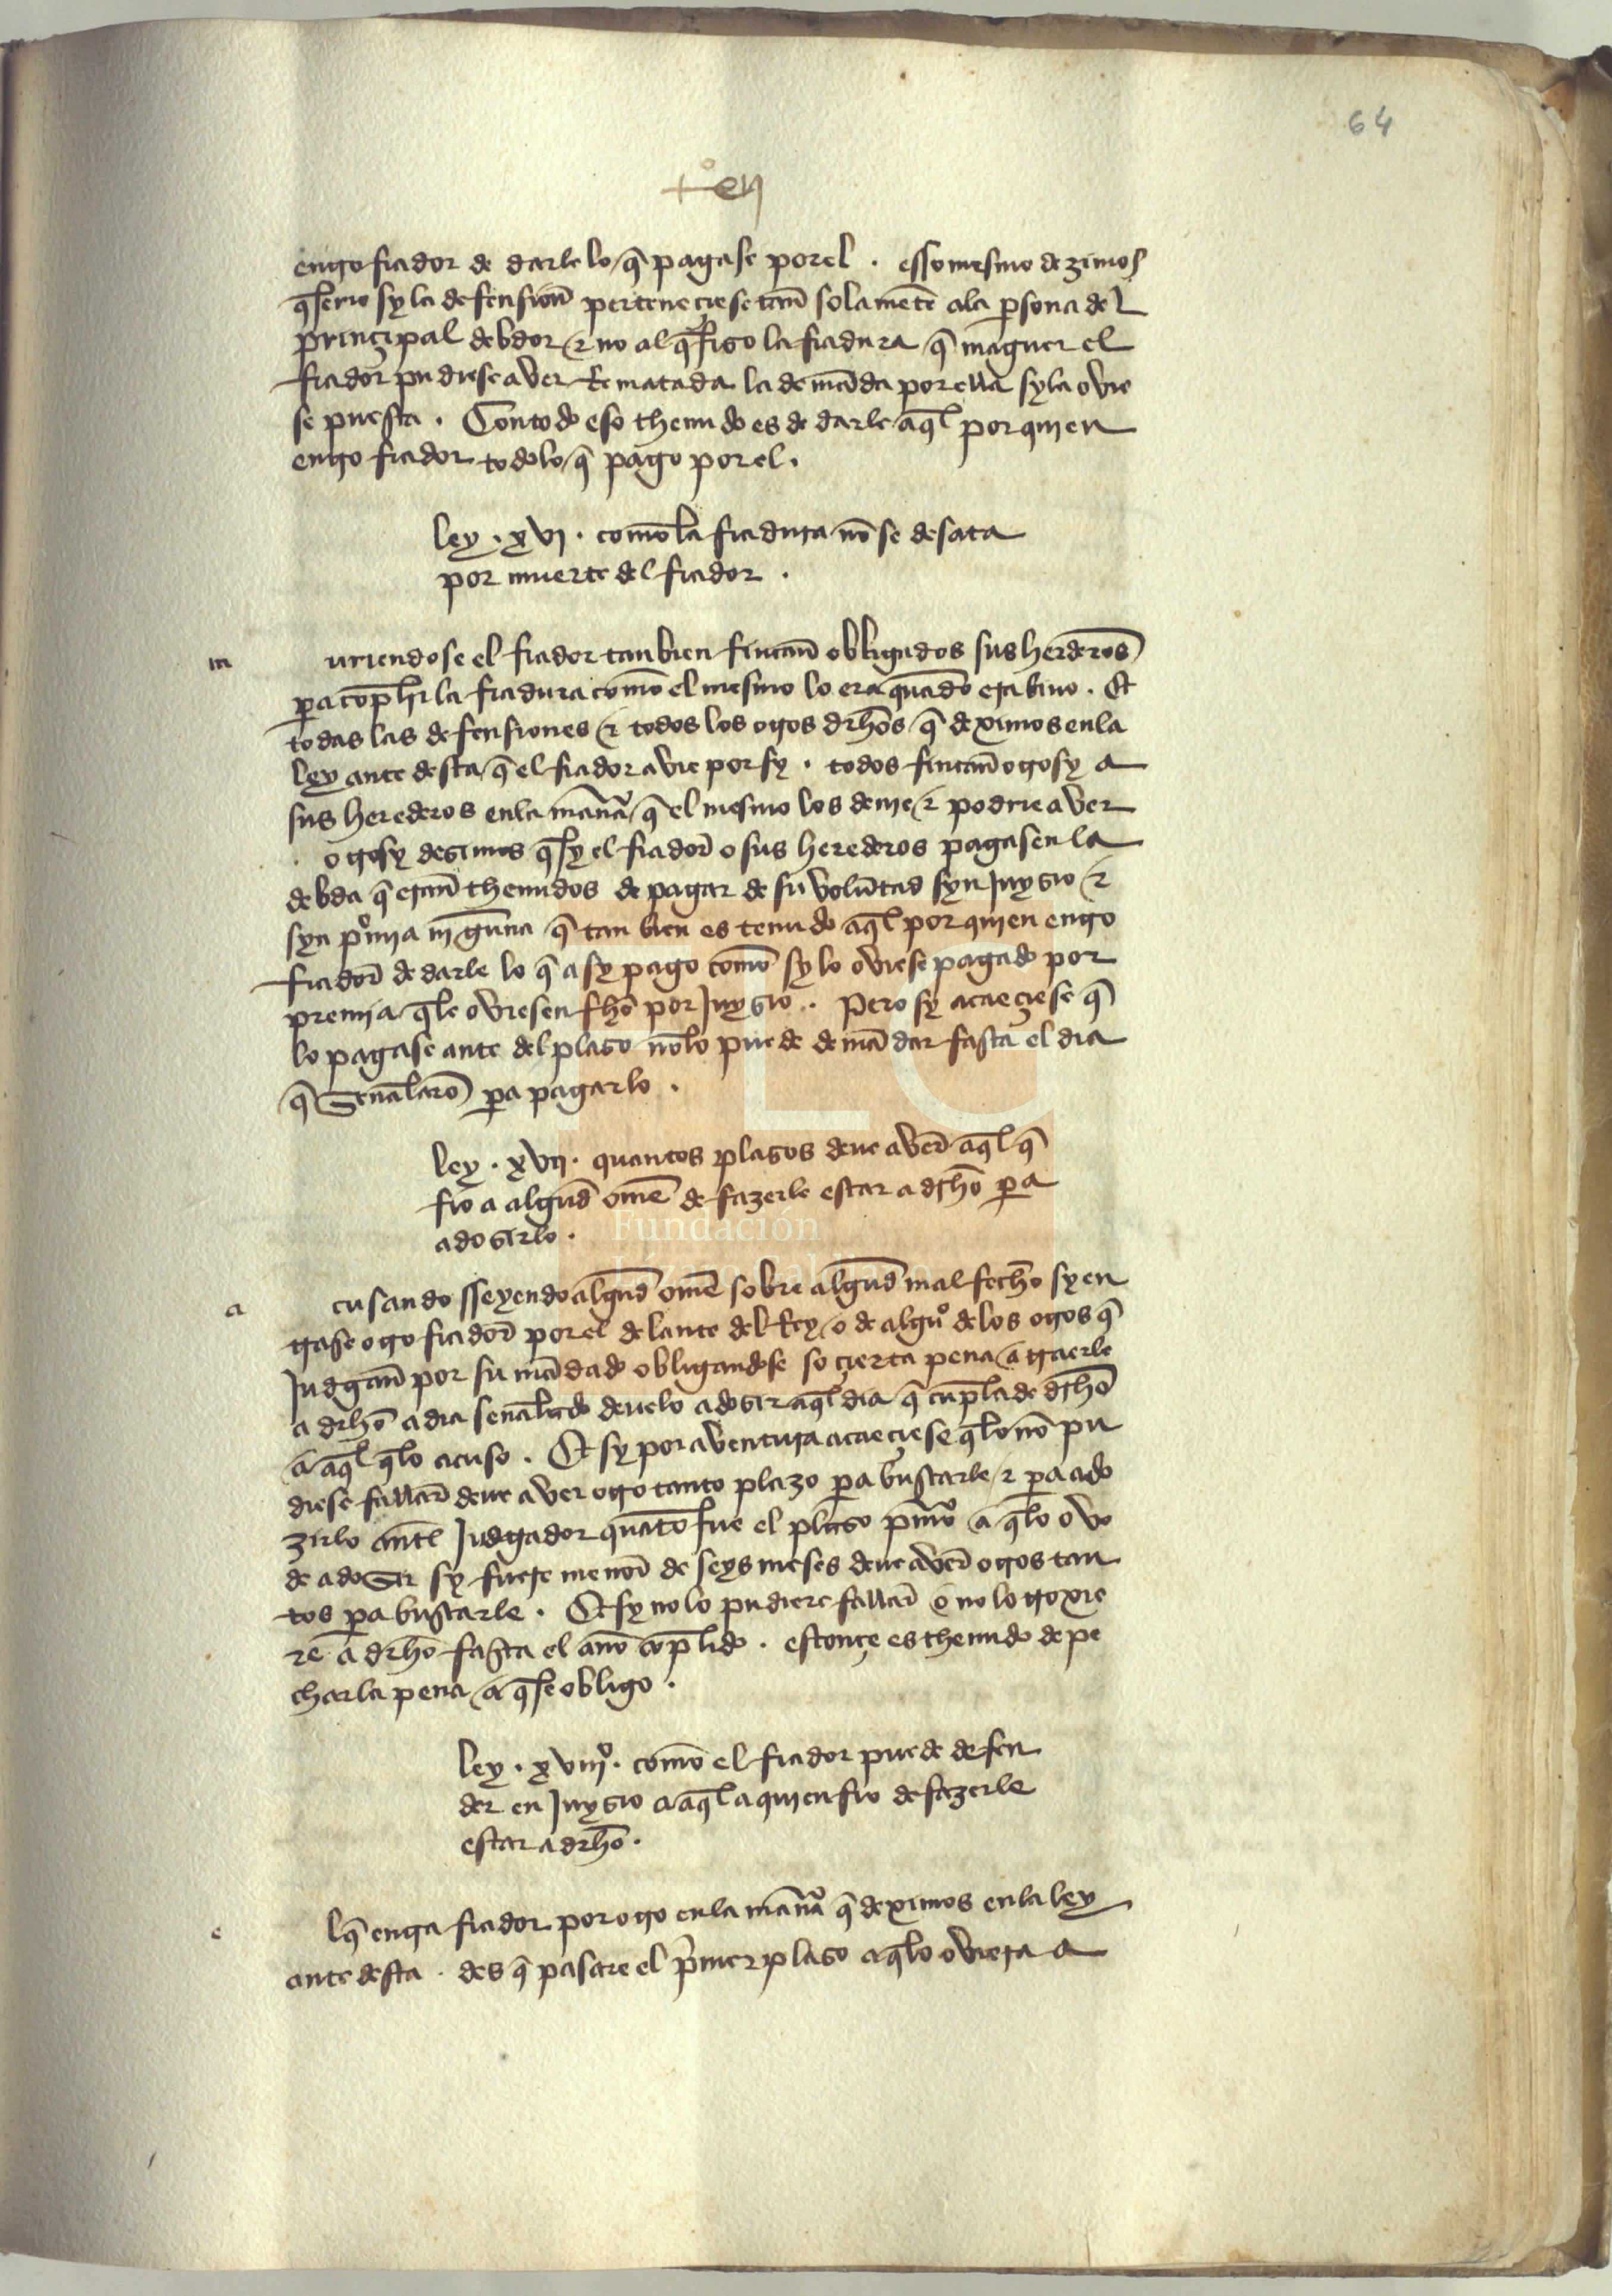 64
en
entro fiador de darle lo q̃ pagase por el . esso mesmo dezimos
q̃ serie sy la defension̄ perteneçiese tan̄ sola mẽte ala p̱sona del
prinçipal debdor ⁊ no al q̃ fizo la fiadura q̃ maguer el
fiador pudiese aver Rematada la demãda por ella sy la ovie
se puesta . Con todo eso thenudo es de darle aq̃l por quien
entro fiador todo lo q̃ pago por el .
ley . xvj . como la fiadura nõ se desata
por muerte del fiador .
m uriendose el fiador tanbien fincan̄ obligados sus herederos
p̱a conplir la fiadura como el mesmo lo era quãdo era biuo . Et
todas las defensiones ⁊ todos los otros drhõs q̃ deximos en la
ley ante desta q̃ el fiador avie por sy . todos fincan̄ otrosy a
sus herederos en la manã q̃ el mesmo los deuie ⁊ podrie aver
. otrosy dezimos q̃ sy el fiador̄ o sus herederos pagasen la
debda q̃ eran̄ thenudos de pagar de su volũtad syn Juyzio ⁊
syn p̃mia nĩguna q̃ tan bien es tenudo aq̃l por quien entro
fiador̄ de darle lo q̃ asy pago como sy lo oviese pagado por
premia q̃ le oviesen fhõ por Juyzio . Pero sy acaeçiese q̃
lo pagase ante del plazo nõ lo puede demãdar fasta el dia
q̃ Señalarõ p̱a pagarlo .
ley . xvij . quantos plazos deue aver̄ aq̃l q̃
fio a algund̄ omẽ de fazerle estar a drhõ p̱a
adozirlo .
a cusando sseyendo algund̄ omẽ sobre algund̄ mal fecho sy en
trase otro fiador̄ por el delante del Rey o de algũo delos otros q̃
Judgan̄ por su mãdado obligandose so çierta pena a traerle
a drhõ a dia señalado deuelo adozir aq̃l dia q̃ cunpla de drhõ
a aq̃l q̃ lo acuso . Et sy por aventura acaeçiese q̃ lo nõ pu
diese fallar̄ deue aver otro tanto plazo p̱a buscarle ⁊ p̱a ado
zirlo antel Judgador quãto fue el plazo p̃mo a q̃ lo ovo
de adozir sy fuere menor̄ de seys meses deue aver̄ otros tan
tos p̱a buscarle . Et sy no lo pudiere fallar̄ o no lo troxie
re a drhõ fasta el año conplido . estonçe es thenudo de pe
char la pena a q̃ se obligo .
ley . xviijº . como el fiador puede defen
der en Juyzio a aq̃l a quien fio de fazerle
estar a drhõ .
e lq̃ entra fiador por otro en la manã q̃ deximos en la ley
ante desta . des q̃ pasare el p̃mer plazo a q̃ lo oviera a